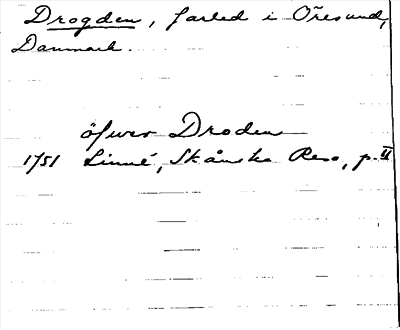 Drogden, farled i Öresund,
Danmark.
öfwer Droden
1751 Linné, Skånska Resa, p. II